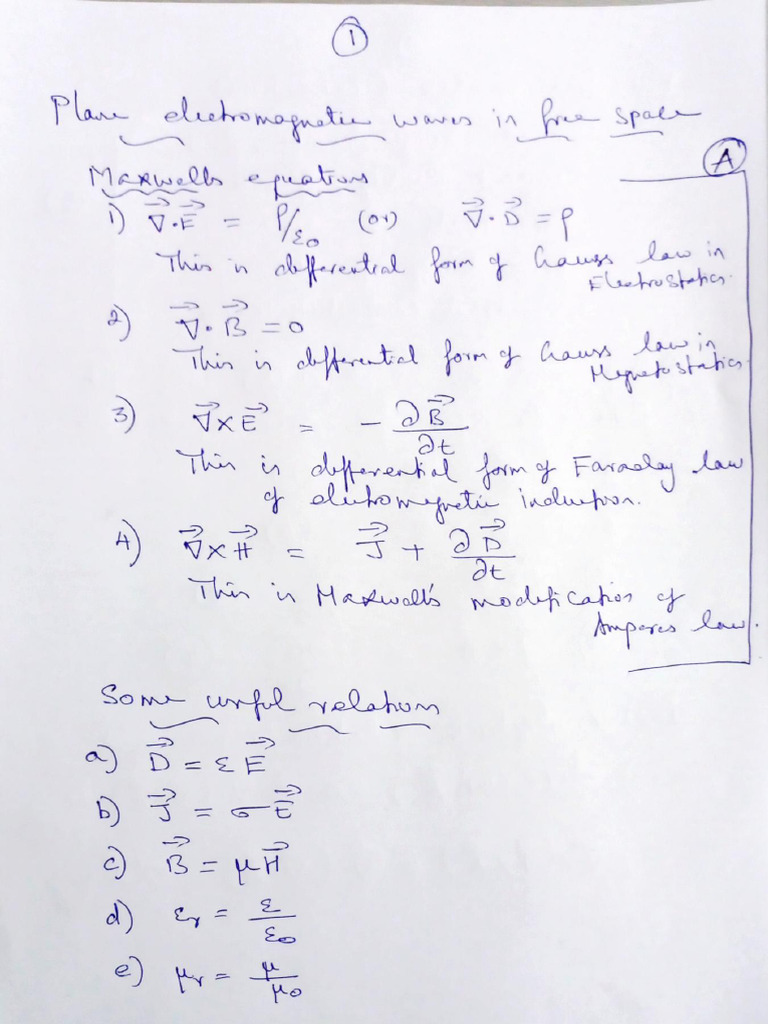 1
Plane electromagnetic waves in free space
A
Maxwells equations
1) ∇⃗·E⃗ = ρ/ε₀ (or) ∇⃗·D⃗ = ρ
This is differential form of Gauss law in
Electrostatics.
2) ∇⃗·B⃗ = 0
This is differential form of Gauss law in
Magnetostatics.
3) ∇⃗×E⃗ = - ∂B⃗/∂t
This is differential form of Faraday law
of electromagnetic induction.
4) ∇⃗×H⃗ = J⃗ + ∂D⃗/∂t
This is Maxwell's modification of
Amperes law.
Some useful relations
a) D⃗ = εE⃗
b) J⃗ = σE⃗
c) B⃗ = μH⃗
d) εr = ε/ε₀
e) μr = μ/μ₀